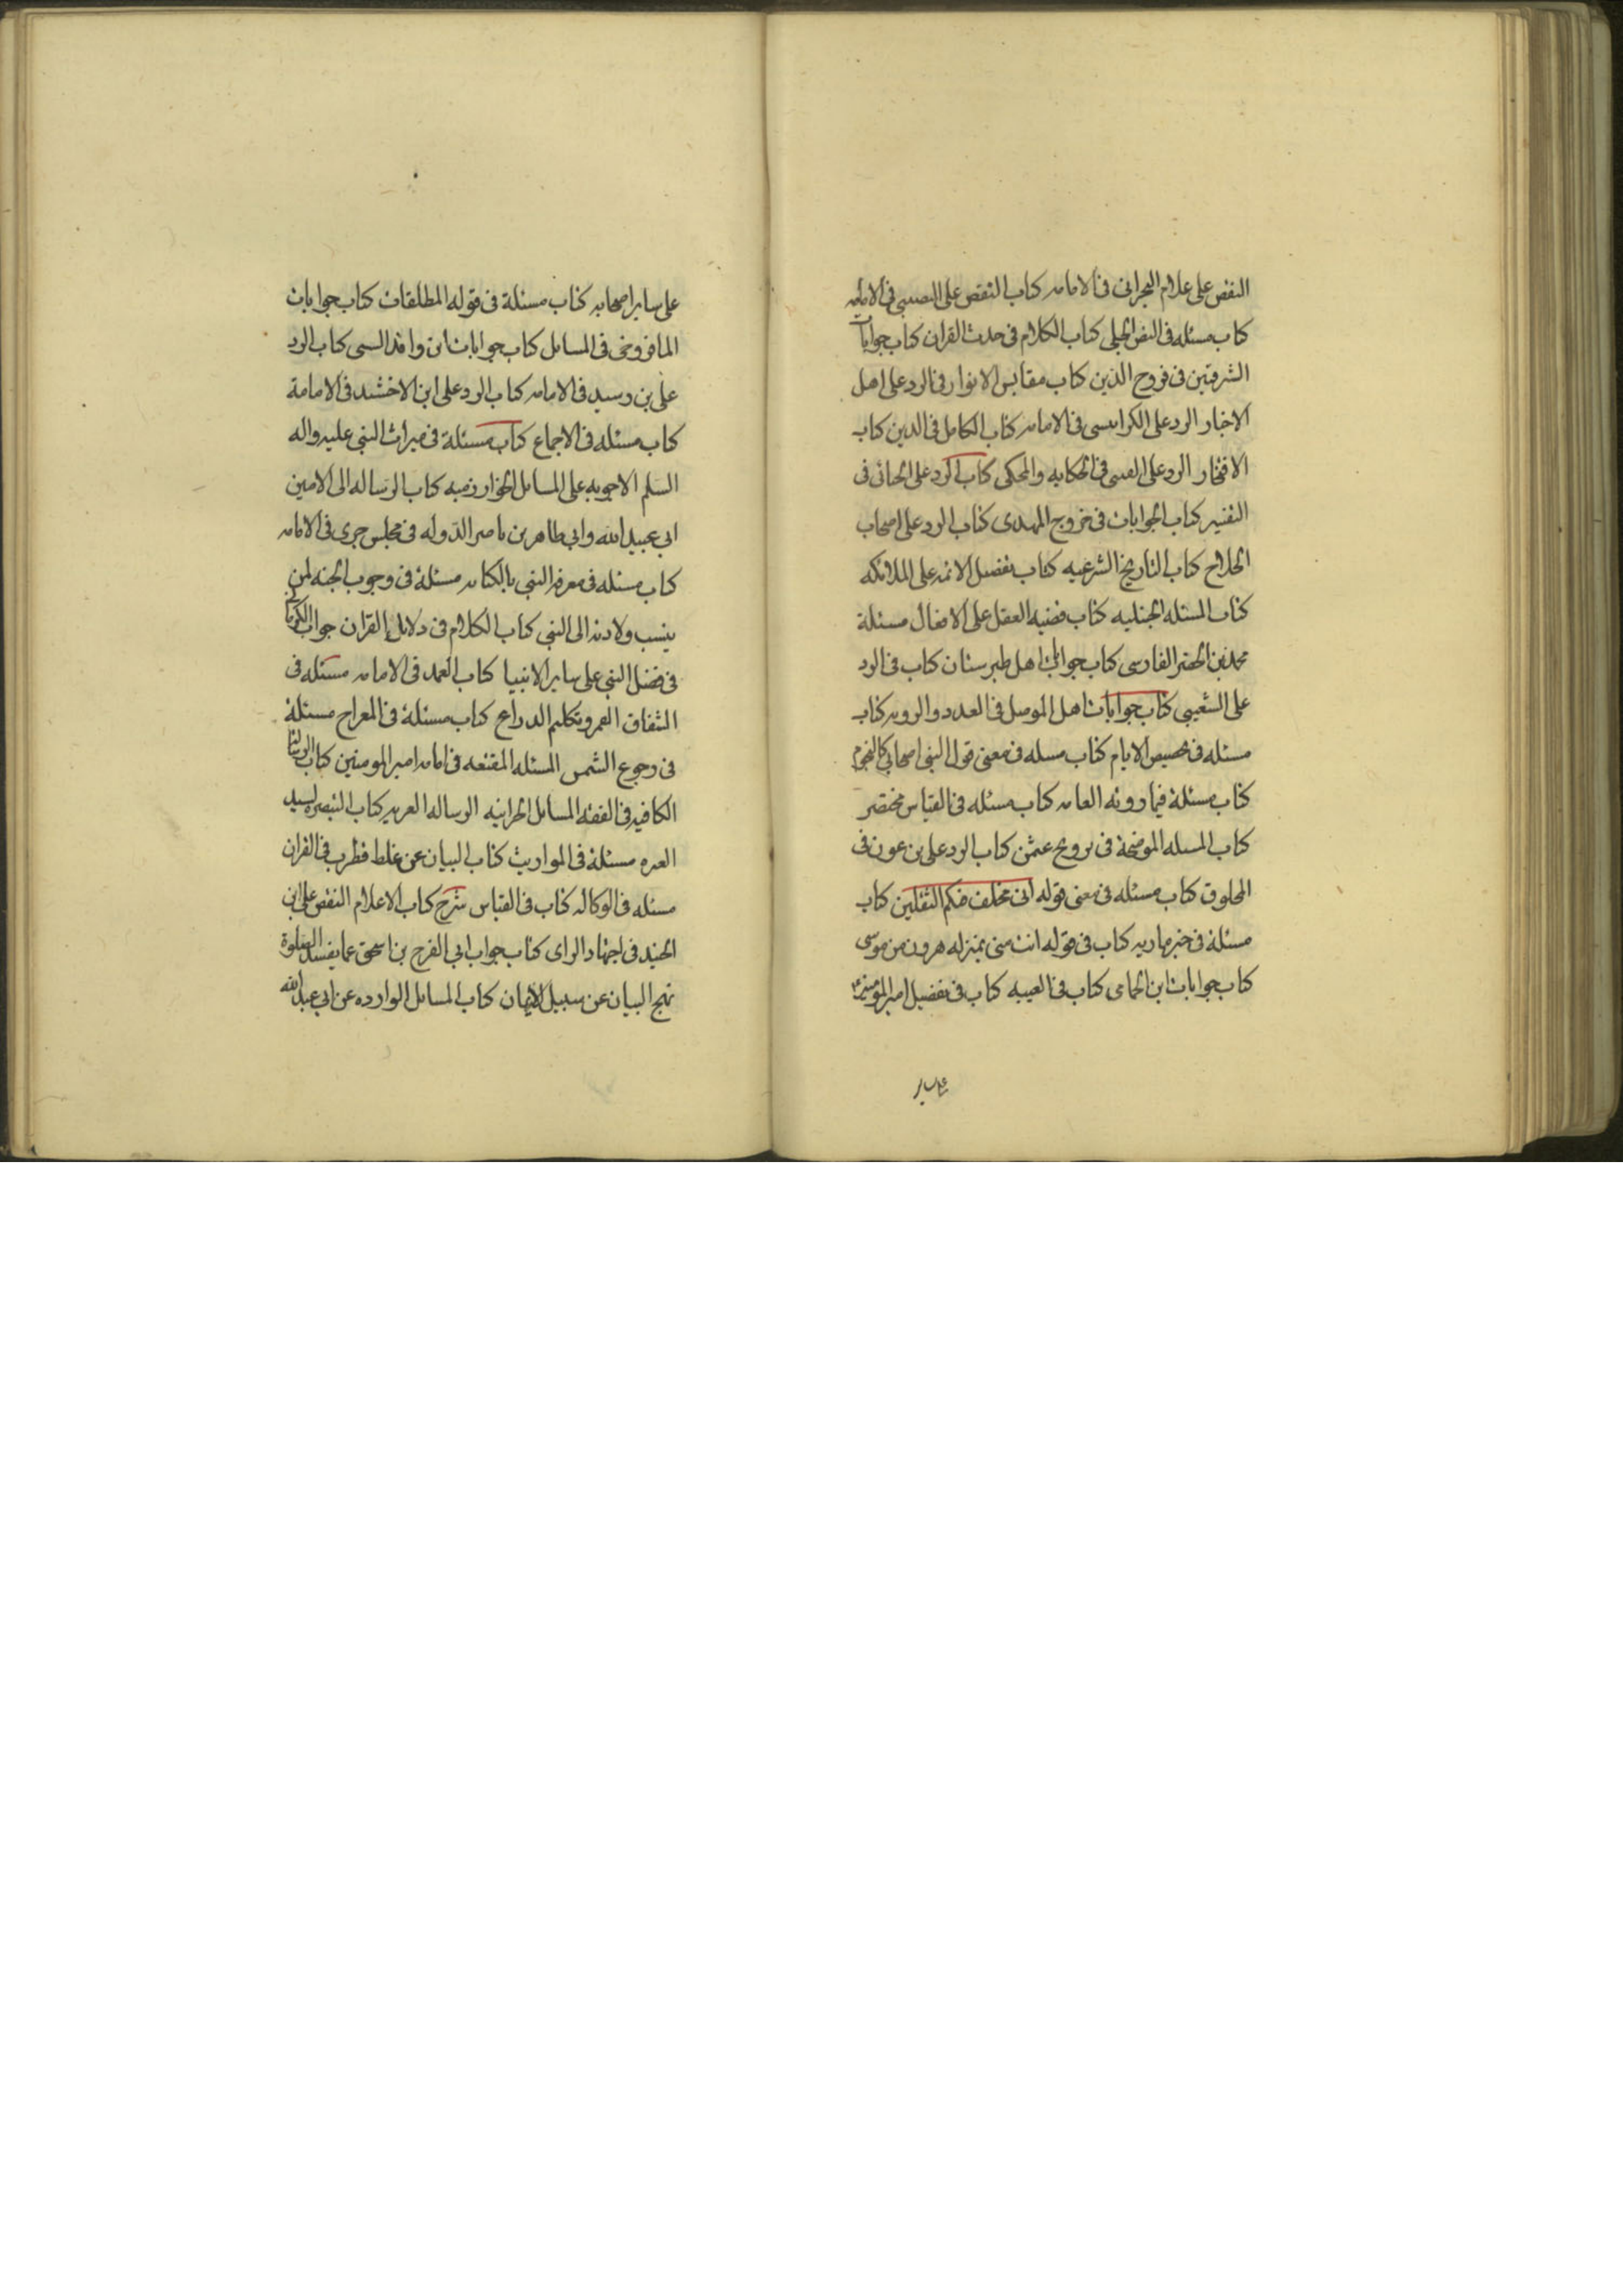 النقض على غلام البحرانى فى الامامه كتاب النقض على النصيبى فى الامامه
كتاب مسئله فى النص الجلى كتاب الكلام فى حدث القران كتاب جوابات
الشرقيين فى فروج الدين كتاب مقابس الانوار فى الرد على اهل
الاخبار الرد على الكرابيسى فى الامامه كتاب الكامل فى الدين كتاب
الافتخار الرد على العسى فى الحكايه والمحكى كتاب الرد على الجبائى فى
التفسير كتاب الجوابات فى خروج المهدى كتاب الرد على اصحاب
الحلاج كتاب التاريخ الشرعيه كتاب تفضيل الائمه على الملائكه
كتاب المسئله الجنبليه كتاب قضيه العقل على الافعال مسئلة
محمد بن الخضر الفارسى كتاب جوابات اهل طبرستان كتاب فى الرد
على الشعيبى كتاب جوابات اهل الموصل فى العدد والرويه كتاب
مسئله فى تخصيص الايام كتاب مسله فى معنى قول النبى اصحابى كالنجوم
كتاب مسئلة فيما روته العامه كتاب مسئله فى القياس مختصر
كتاب المسله الموضحة فى تزويج عثمن كتاب الرد على بن عون فى
المخلوق كتاب مسئله فى معنى قوله انى مخلف فيكم الثقلين كتاب
مسئلة فى خبر ماريه كتاب فى قوله انت منى بمنزله هرون من موسى
كتاب جوابات ابن الحمامى كتاب فى الغيبه كتاب فى تفضيل امير المؤمنين
على ساير اصحابه كتاب مسئلة فى قوله المطلقات كتاب جوابات
المافروخى فى المسايل كتاب جوابات ابن واقد السى كتاب الرد
على بن رسيد فى الامامه كتاب الرد على ابن الاخشد فى الامامة
كتاب مسئله فى الاجماع كتاب مسئلة فى ميراث النبى عليه واله
السلم الاجوبه على المسايل الخوارزميه كتاب الرساله الى الامين
ابى عبيد الله وابى طاهر بن ناصر الدوله فى مجلس جرى فى الامامه
كتاب مسئله فى معرفه النبى بالكتابه مسئلة فى وجوب الجنه لمن
ينسب ولادته الى النبى كتاب الكلام فى دلايل القران جواب الكرمانى
فى فضل النبى على ساير الانبيا كتاب العمد فى الامامه مسئله فى
انشقاق القمر وتكليم الدراع كتاب مسئلة فى المعراج مسئلة
فى رجوع الشمس المسئله المقنعه فى امامه امير المومنين كتاب الرسالة
الكافيه فى الفقه المسايل الحرانيه الرساله العزيه كتاب التبصره لسيد
العره مسئلة فى المواريث كتاب البيان عن غلط قطرب فى القران
مسئله فى الوكاله كتاب فى القياس شرح كتاب الاعلام النقض على ابن
الجنيد فى اجتهاد الراى كتاب جواب ابى الفرج بن اسحق عما يفسد الصلوة
نهج البيان عن سبيل الايمان كتاب المسايل الوارده عن ابى عبد الله